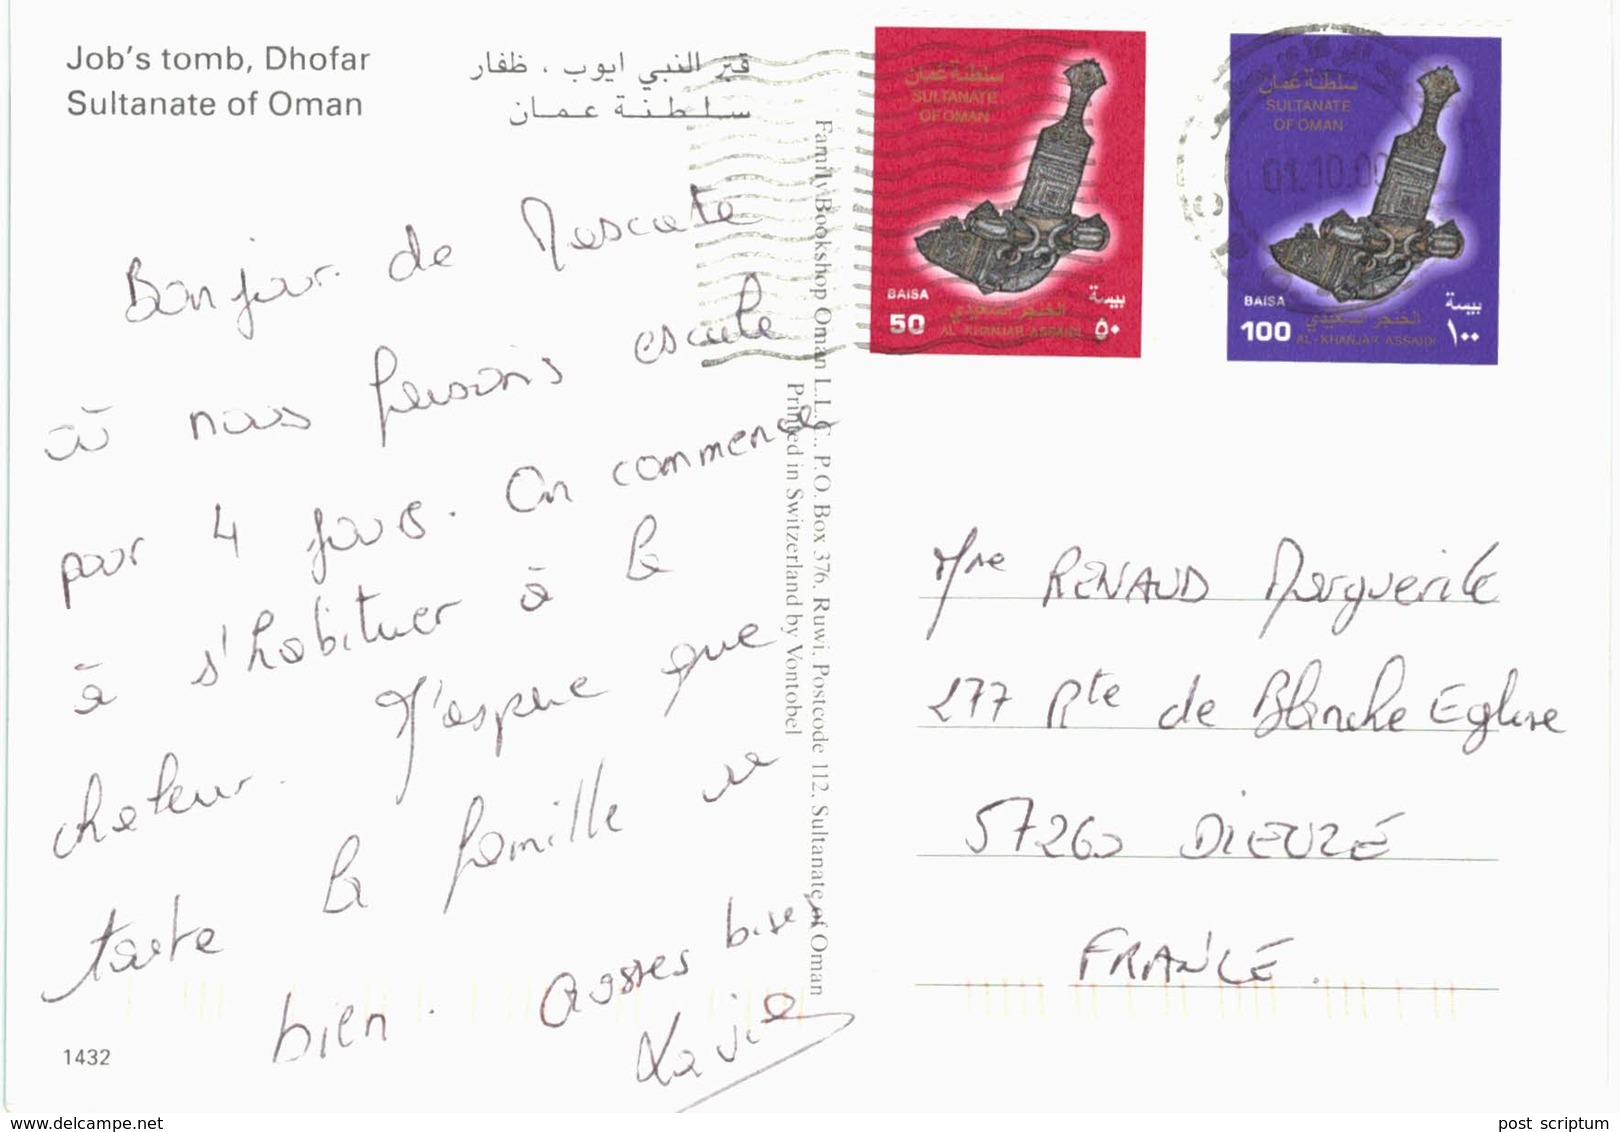 Job's tomb, Dhofar
Sultanate of Oman
قبر النبي ايوب ، ظفار
سلطنة عمان
Bonjour de Mascate
où nous faisons escale
pour 4 jours. On commence
à s'habituer à la
chaleur. J'espère que
toute la famille va
bien. Grosses bises
Xavier
1432
Family Bookshop Oman L.L.C., P.O. Box 376, Ruwi, Postcode 112, Sultanate of Oman
Printed in Switzerland by Vontobel
سلطنة عمان
SULTANATE
OF OMAN
BAISA
بيسة
50
٥٠
الخنجر السعيدي
AL-KHANJAR ASSAIDI
سلطنة عمان
SULTANATE
OF OMAN
01.10.0
BAISA
بيسة
100
١٠٠
الخنجر السعيدي
AL-KHANJAR ASSAIDI
Mme RENAUD Marguerite
277 Rte de Blanche Eglise
57260 DIEUZE
FRANCE.
www.delcampe.net
post scriptum